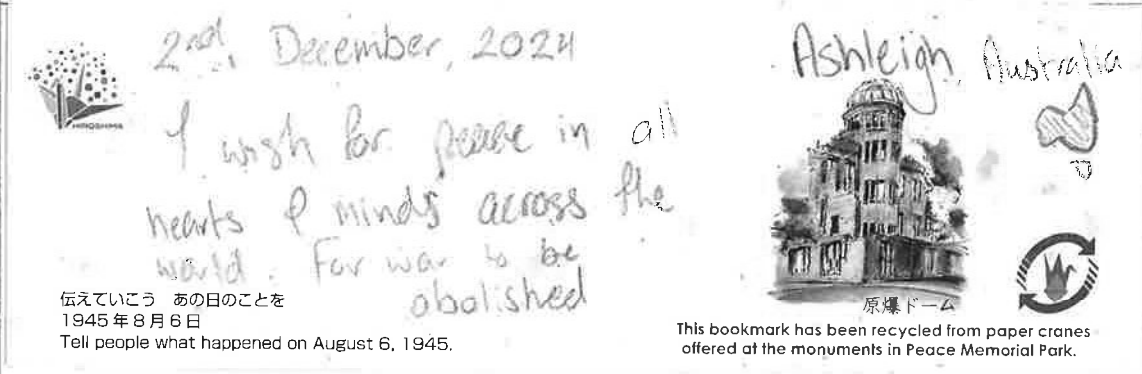 2nd, December, 2024
I wish for peace in all
hearts & minds across the
world. For war to be
abolished
HIROSHIMA
伝えていこう あの日のことを
1945年8月6日
Tell people what happened on August 6, 1945.
Ashleigh, Australia
原爆ドーム
This bookmark has been recycled from paper cranes
offered at the monuments in Peace Memorial Park.